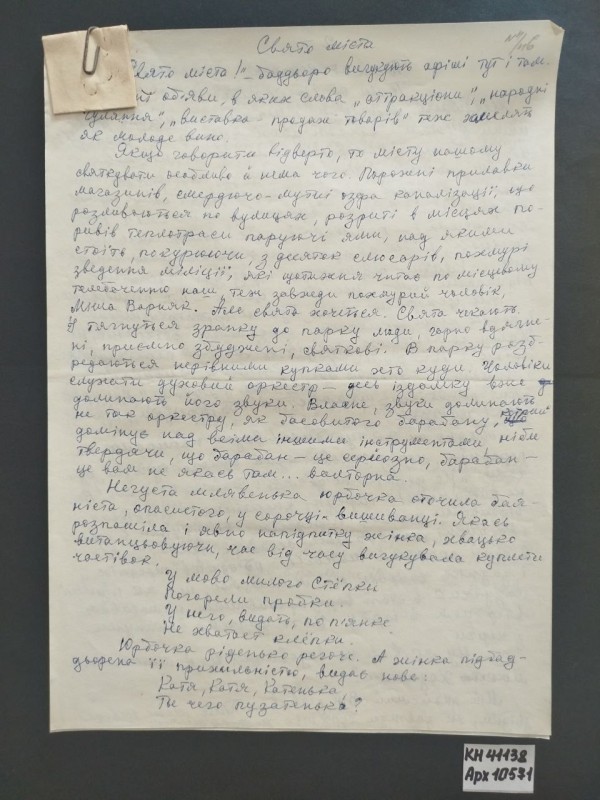 Свято міста
№ 1/46
Свято міста!" – бадьоро вигукують афіші тут і там.
обіяви, в яких слова „аттракціони", „народні
гуляння", „виставка - продаж товарів" теж хмелять
як молоде вино.
Якщо говорити відверто, то місту нашому
святкувати особливо й нема чого. Порожні прилавки
магазинів, смердючо-мутні озера каналізації, що
розливаються по вулицях, розриті в місцях по-
ривів теплотраси паруючі ями, над якими
стоїть, покурюючи, з десяток слюсарів, похмурі
зведення міліції, які щотижня читає по місцевому
наш, теж завжди похмурий чоловік,
Миша Варняк. Але свята хочеться. Свята чекають.
І тягнуться зранку до парку люди, гарно вдягне-
ні, приємно збуджені, святкові. В парку розб-
редаються нерівними купками хто куди. Чоловіки
слухати духовий оркестр – десь іздалику вже
долинають його звуки. Власне, звуки долинають
не так оркестру, як басовитого барабану, котрий
домінує над всіма іншими інструментами ніби
твердячи, що барабан – це серйозно, барабан –
це вам не якаєь там... валторна.
Негуста млявенька юрбочка оточила бая-
ніста, опасистого, у сорочці-вишиванці. Якась
розпашіла і явно напідпитку жінка, хвацько
витанцьовуючи, час від часу вигукувала куплети
частівок.
У мово милого Стёпки
Погорели пробки.
У него, видать, по п'янке
Не хватает клёпки.
Юрбочка ріденько регоче. А жінка підбад-
дьорена її прихильністю, видає нове:
Катя, Катя, Катенька,
Ти чего пузатенька?
КН 41138
Арх 10531